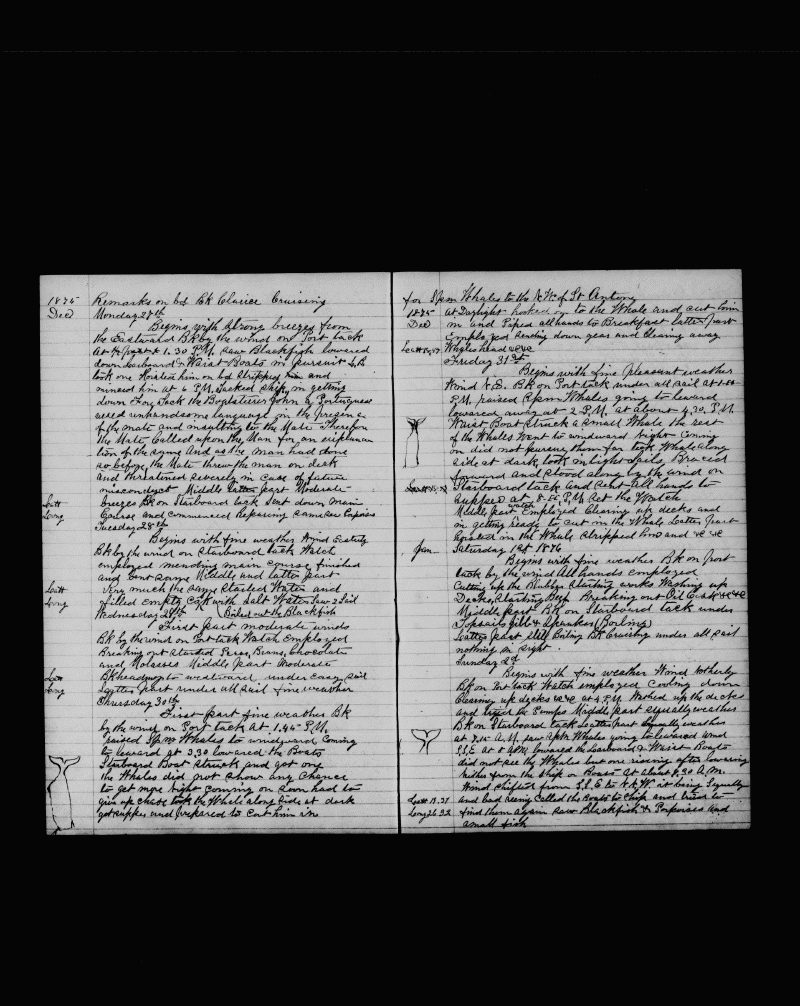 1875 Remarks on bd Bk Clarice Cruising
Dec Monday 27th
Begins with strong breezes from
the Eastward Bk by the wind on Port tack
At 1.30 P.M. saw Blackfish lowered
down Larboard & Waist Boats in pursuit L.B.
took one Hoisted him on bd Stripped him and
minced him at 4 P.M. Tacked Ship in getting
down Fore Tack the Boatsteerer John a Portuguese
used unhandsome language in the presence
of the mate and insulting to the Mate Therefore
the Mate Called upon the Man for an explana
tion of the same And as the man had done
so before, the Mate threw the man on deck
and threatened severely in case of future
misconduct Middle & Latter part Moderate
Latt breezes Bk on Starboard tack Sent down Main
Long Course and commenced Repairing same saw Porpoises
Tuesday 28th
Begins with fine weather Wind Easterly
Bk by the wind on Starboard tack Watch
employed mending main course finished
and bent same Middle and latter part
Latt Very much the same Started Water and
Long filled empty Cask with Salt Water Saw 2 Sail
Wednesday 29th (Boiled out the Blackfish
First part moderate winds
Bk by the wind on Port tack Watch Employed
Breaking out Peas, Beans, Chocolate
and Molasses Middle part Moderate
Latt Bk heading to westward under easy sail
Long Latter part under all sail fine weather
Thursday 30th
First part fine weather Bk
by the wind on Port tack At 1.45 P.M.
raised Spm Whales to windward Coming
to leward at 3.30 lowered the Boats
Starboard Boat Struck and got one
the Whales did not show any Chance
to get more Night coming on Soon had to
give up chase took the Whale along side at dark
got supper and prepared to Cut him in
for Spm Whales to the N.W. of St Antony
1875 at Daylight hooked on to the Whale and cut him
Dec in and Piped all hands to Breakfast latter part
employed sending down gear and Clearing away
Latt Whales head &c &c
Friday 31st
Begins with fine pleasant weather
Wind N.E. Bk on Port tack under all sail at
P.M. raised Spm Whales going to leward
lowered away at 2 P.M. at about 4.30 P.M.
Waist Boat Struck a small Whale the rest
of the Whales Went to windward Night Coming
on did not pursue them far took Whale along
side at dark took in light Sails Braced
forward and stood along by the wind on
Latt Starboard tack and Sent all hands to
supper at P.M. Set the Watch
Middle part watch Employed Clearing up decks and
in getting ready to cut in the Whale Latter part
hoisted in the Whale stripped him and &c &c
Jan Saturday 1st 1876
Begins with fine weather Bk on Port
tack by the wind All hands employed
Cutting up the Blubber Starting works Washing up
Decks, Starting Beef Breaking out Oil Cask &c &c
Middle part Bk on Starboard tack under
Topsails Jibb & Spanker (Boiling)
Latter part still Boiling Bk Cruising under all sail
nothing in sight.
Sunday 2d
Begins with fine weather Wind Notherly
Bk on Port tack Watch employed Cooling down
Clearing up decks &c &c at 4 P.M. Washed up the decks
and tryed the Pumps Middle part Squally weather
Bk on Starboard tack Latter part Squally weather
at 7.15 A.M. saw Spm Whales going to leward Wind
S.S.E. at 8 A.M. lowered the Larboard & Waist Boats
did not see the Whales but one rising after lowering
neither from the ship or Boats At about 9.30 A.M.
Wind shifted from S.S.E to N.N.W. it being Squally
Latt 18.21 and bad seeing Called the Boats to Ship and tried to
Long 26.32 find them again saw Blackfish & Porpoises and
small fish